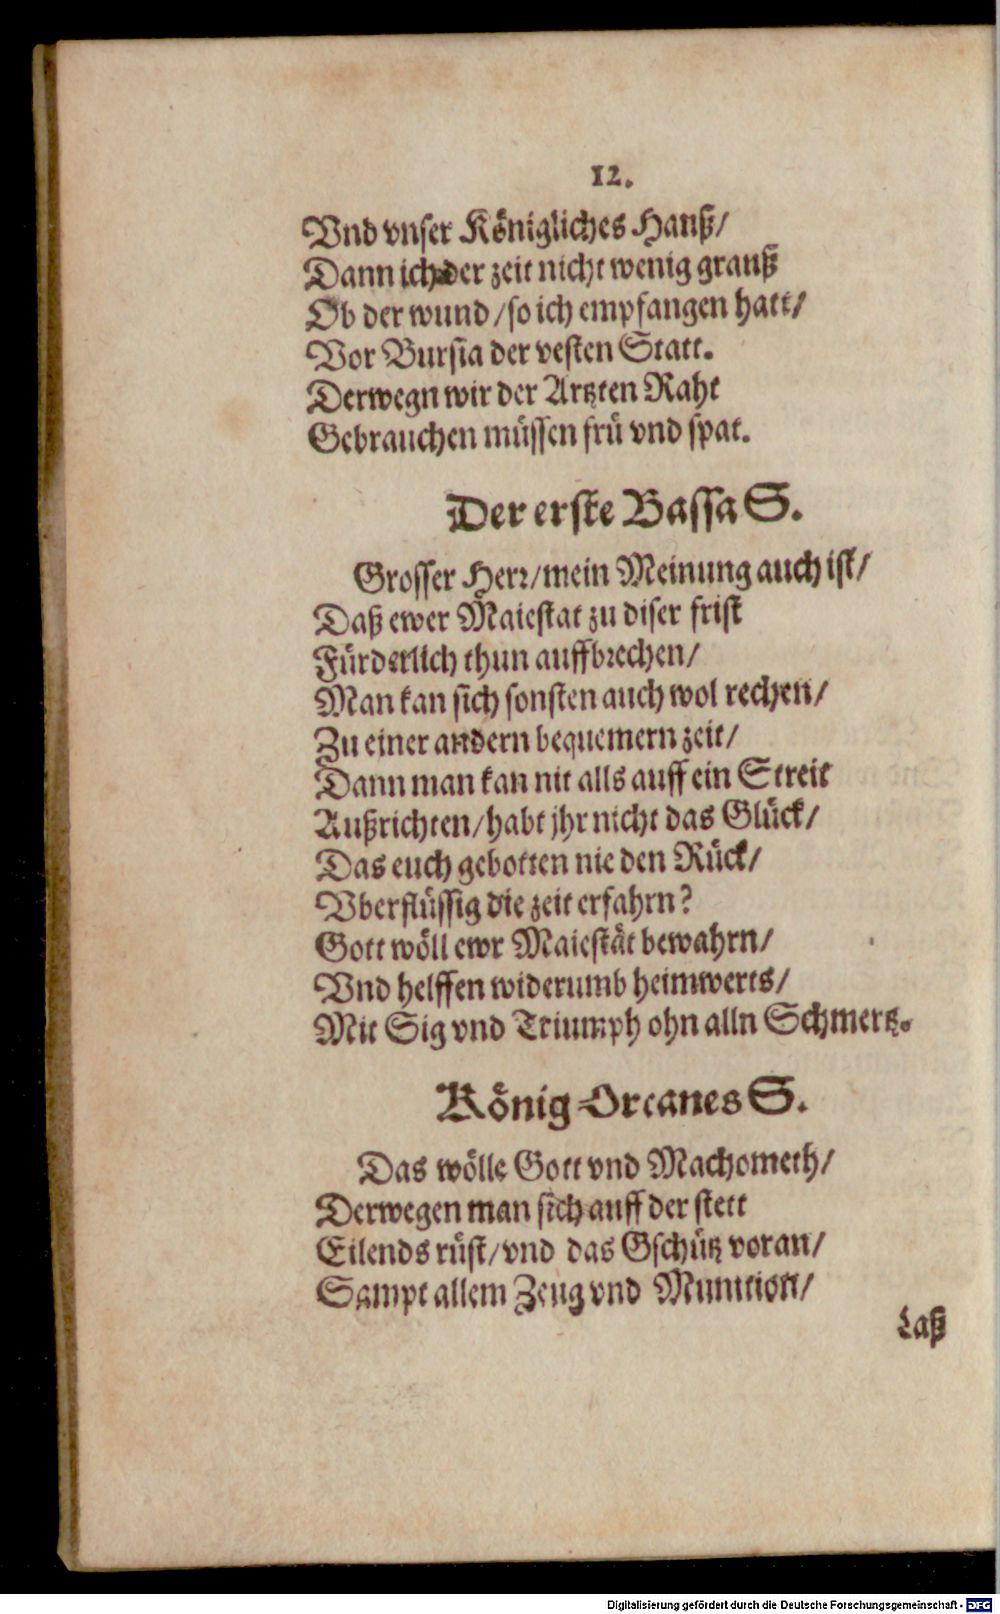 12.
Vnd vnser Königliches Hauß/
Dann ich der zeit nicht wenig grauß
Ob der wund/so ich empfangen hatt/
Vor Bursia der vesten Statt.
Derwegn wir der Artzten Raht
Gebrauchen müssen frü vnd spat.
Der erste Bassa S.
Grosser Herr/mein Meinung auch ist/
Daß ewer Maiestat zu diser frist
Fürderlich thun auffbrechen/
Man kan sich sonsten auch wol rechen/
Zu einer andern bequemern zeit/
Dann man kan nit alls auff ein Streit
Außrichten/habt jhr nicht das Glück/
Das euch gebotten nie den Rück/
Vberflüssig die zeit erfahrn?
Gott wöll ewr Maiestät bewahrn/
Vnd helffen widerumb heimwerts/
Mit Sig vnd Triumph ohn alln Schmertz.
König Orcanes S.
Das wölle Gott vnd Machometh/
Derwegen man sich auff der stett
Eilends rüst/vnd das Gschütz voran/
Sampt allem Zeug vnd Munition/
Laß
Digitalisierung gefördert durch die Deutsche Forschungsgemeinschaft - DFG